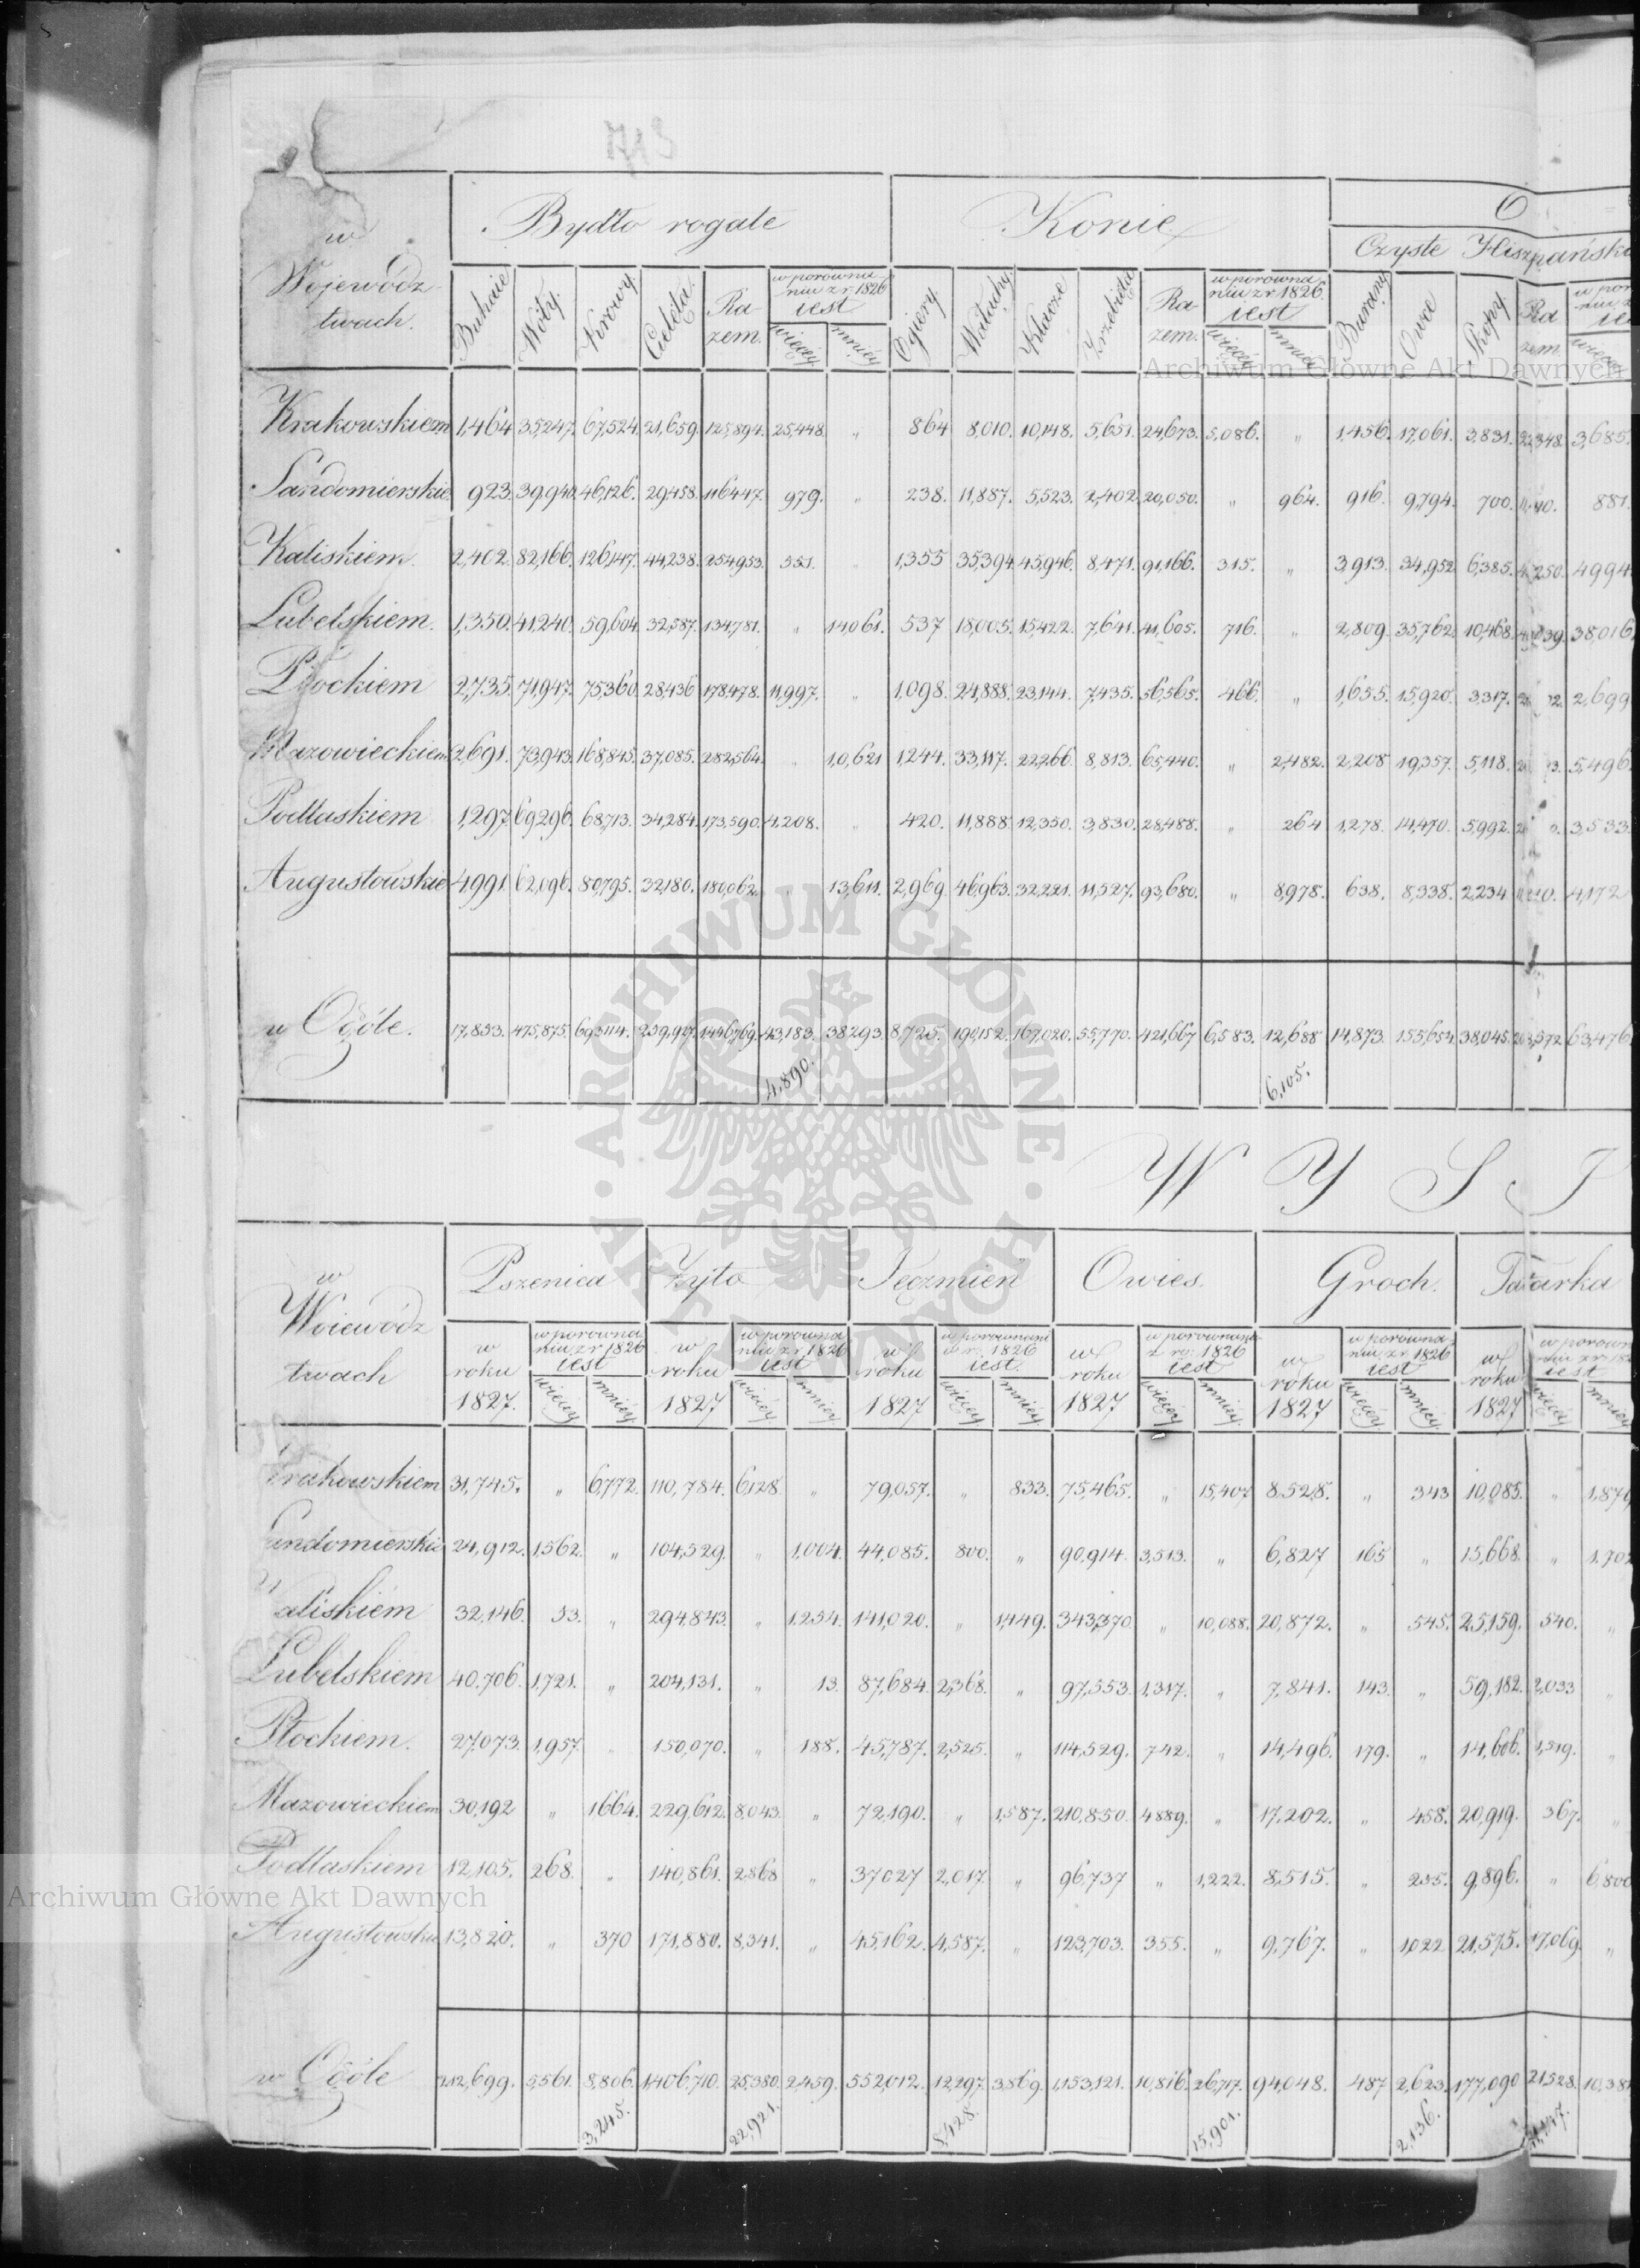 713
w Wojewódz twach.
Bydło rogate
Konie
O
Czyste Hiszpańskie
Buhaie
Woły
Krowy.
Cielęta.
Ra zem.
w porowna niu z r 1826 iest
więcéy
mniéy
Ogiery.
Wałachy.
Klacze
Zrzebięta
Ra zem.
w porowna niu z r 1826. iest
więcéy
mniéy
Barany
Owce
Skopy
Ra zem
więcéy
Archiwum Główne Akt Dawnych
Krakowskiem 1,464 35,247. 67,524. 21,659. 125,894. 25,448. „ 864 8,010. 10,148. 5,651. 24,673. 5,086. „ 1,456. 17,061. 3,831. 22,348. 3,685.
Sandomierskie 923. 39,940. 46,126. 29,458. 116,447. 979. „ 238. 11,887. 5,523. 2,402. 20,050. „ 964. 916. 9,794. 700. 881.
Kaliskiem. 2,402. 82,166. 126,147. 44,238. 254,953. 551. „ 1,355 35,394. 45,946. 8,471. 91,166. 315. „ 3,913. 34,952. 6,385. 4994.
Lubelskiem. 1,350. 41,240. 59,604. 32,587. 134,781. „ 14,061. 537 18,005. 15,422. 7,641. 41,605. 716. „ 2,809. 35,762. 10,468. 38,016.
Płockiem 2,735. 71,947. 75,360. 28,436 178,478. 11,997. „ 1,098. 24,888. 23,144. 7,435. 56,565. 466. „ 1,655. 15,920. 3,317. 2,699
Mazowieckiem 2,691. 73,943. 168,845. 37,085. 282,564. „ 10,621 1,244. 33,117. 22,266. 8,813. 65,440. „ 2,482. 2,208 19,357. 5,118. 5,496.
Podlaskiem 1,297. 69,296. 68,713. 34,284. 173,590. 4,208. „ 420. 11,888. 12,350. 3,830. 28,488. „ 264 1,278. 14,470. 5,992. 3,533.
Augustowskie 4,991. 62,096. 80,795. 32,180. 180,062. „ 13,611. 2,969. 46,963. 32,221. 11,527. 93,680. „ 8,978. 638. 8,338. 2,234 4,172
w Ogóle. 17,853. 475,875. 693,114. 259,927. 1,446,769. 43,183. 38,293 8,725. 190,152. 167,020. 55,770. 421,667 6,583. 12,688 14,873. 155,654. 38,045. 63,476.
4,890.
6,105.
ARCHIWUM GŁÓWNE AKT DAWNYCH
W Y S I
w Woiewódz twach
Pszenica
Żyto
Jęczmień
Owies.
Groch.
Tatarka
w roku 1827.
w porowna niu z r 1826 iest
więcéy
mniéy
w roku 1827
w porowna niu z r 1826 iest
więcéy
mniéy
w roku 1827
w porownaniu z r. 1826 iest.
więcéy
mniéy
w roku 1827
w porownaniu z ro. 1826 iest
więcéy
mniéy.
w roku 1827
w porowna niu z r. 1826 iest
więcéy
mniéy
w roku 1827
iest
więcéy
mniéy
Krakowskiem 31,745. „ 6,772. 110,784. 6,128. „ 79,057. „ 833. 75,465. „ 15,407 8,528. „ 343 10,085. „
Sandomierskie 24,912. 1,562. „ 104,529. „ 1,004. 44,085. 800. „ 90,914. 3,513. „ 6,827 165 „ 15,668. „
Kaliskiém 32,146. 53. „ 294,843. „ 1,254. 141,020. „ 1,449. 343,370. „ 10,088. 20,872. „ 545. 25,159. 540. „
Lubelskiem 40,706. 1,721. „ 204,131. „ 13. 87,684. 2,368. „ 97,553. 1,317. „ 7,841. 143. „ 59,182. 2,033 „
Płockiem. 27,073. 1,957. „ 150,070. „ 188. 45,787. 2,525. „ 114,529. 742. „ 14,496. 179. „ 14,606. 1,519. „
Mazowieckiem 30,192 „ 1664. 229,612. 8,043. „ 72,190. „ 1,587. 210,850. 4889. „ 17,202. „ 458. 20,919. 367. „
Podlaskiem 12,105. 268. „ 140,861. 2,868 „ 37027 2,017. „ 96,737 „ 1,222. 8,515. „ 255. 9,896. „
Archiwum Główne Akt Dawnych
Augustowskie 13,820. „ 370 171,880. 8,341. „ 45,162. 4,587. „ 123,703. 355. „ 9,767. „ 1,022 21,575. 17,069. „
w Ogóle 212,699. 5,561. 8,806. 1,406,710. 25,380. 2,459. 552,012. 12,297. 3,869. 1,153,121. 10,816. 26,717. 94,048. 487 2,623. 177,090 21,528.
3,245.
22,921.
8,428.
15,901.
2,136.